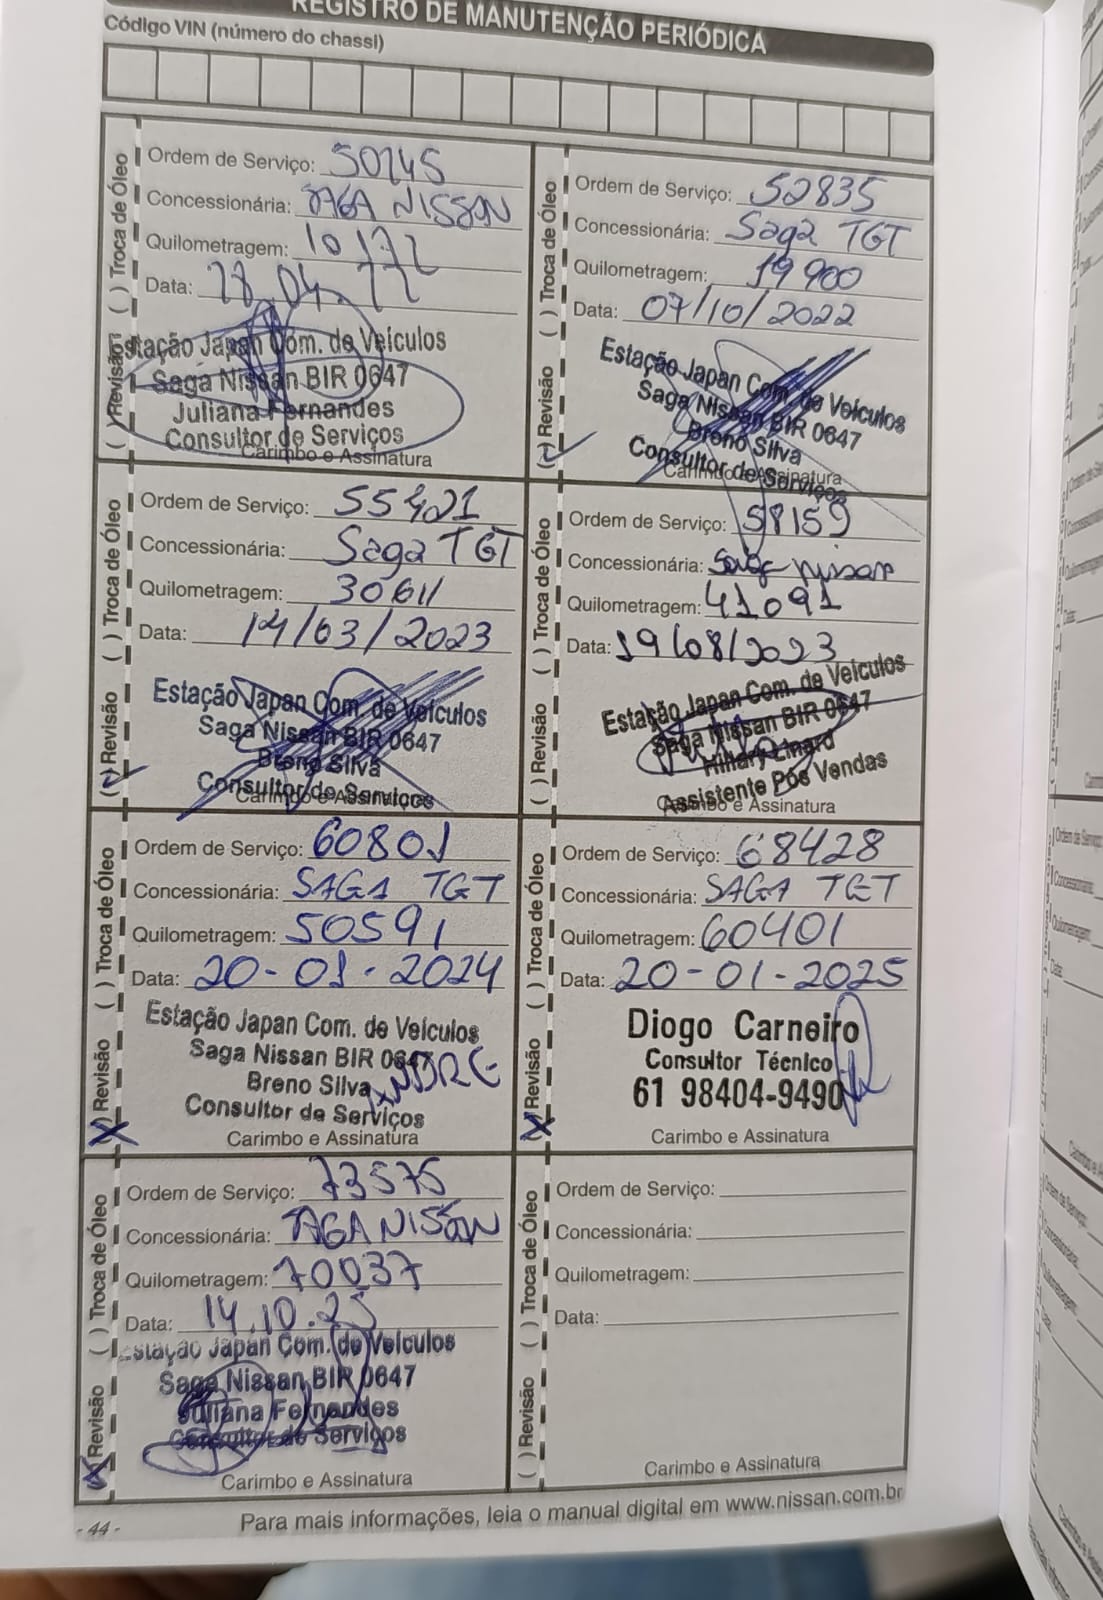 REGISTRO DE MANUTENÇÃO PERIÓDICA
Código VIN (número do chassi)
( ) Revisão ( ) Troca de Óleo
Ordem de Serviço: 50745
Concessionária: SAGA NISSAN
Quilometragem: 10172
Data: 28.04.22
Estação Japan Com. de Veículos
Saga Nissan BIR 0647
Juliana Fernandes
Consultor de Serviços
Carimbo e Assinatura
( ) Revisão ( ) Troca de Óleo
Ordem de Serviço: 52835
Concessionária: Saga TGT
Quilometragem: 19900
Data: 07/10/2022
Estação Japan Com. de Veículos
Saga Nissan BIR 0647
Breno Silva
Consultor de Serviços
Carimbo e Assinatura
( ) Revisão ( ) Troca de Óleo
Ordem de Serviço: 55421
Concessionária: Saga TGT
Quilometragem: 30611
Data: 14/03/2023
Estação Japan Com. de Veículos
Saga Nissan BIR 0647
Breno Silva
Consultor de Serviços
Carimbo e Assinatura
( ) Revisão ( ) Troca de Óleo
Ordem de Serviço: 58159
Concessionária: Saga Nissan
Quilometragem: 41091
Data: 19/08/2023
Estação Japan Com. de Veículos
Saga Nissan BIR 0647
Hillary Linard
Assistente Pós Vendas
Carimbo e Assinatura
(X) Revisão ( ) Troca de Óleo
Ordem de Serviço: 60801
Concessionária: SAGA TGT
Quilometragem: 50591
Data: 20-01-2024
Estação Japan Com. de Veículos
Saga Nissan BIR 0647
Breno Silva
Consultor de Serviços
Carimbo e Assinatura
(X) Revisão ( ) Troca de Óleo
Ordem de Serviço: 68428
Concessionária: SAGA TGT
Quilometragem: 60401
Data: 20-01-2025
Diogo Carneiro
Consultor Técnico
61 98404-9490
Carimbo e Assinatura
(X) Revisão ( ) Troca de Óleo
Ordem de Serviço: 73575
Concessionária: SAGA NISSAN
Quilometragem: 70037
Data: 14.10.25
Estação Japan Com. de Veículos
Saga Nissan BIR 0647
Juliana Fernandes
Consultor de Serviços
Carimbo e Assinatura
( ) Revisão ( ) Troca de Óleo
Ordem de Serviço:
Concessionária:
Quilometragem:
Data:
Carimbo e Assinatura
- 44 -
Para mais informações, leia o manual digital em www.nissan.com.br